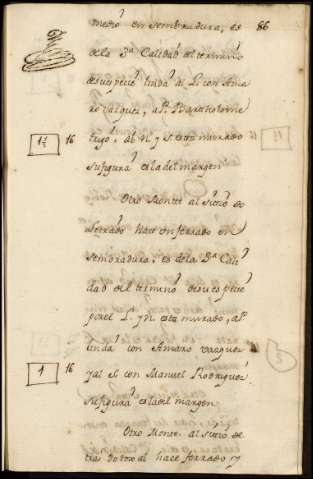 medio en sembradura, es 86
de la 3ª Calidad el termino
de su especie linda al L. con Ama
ro Vazquez, a P. Bartolome
al N. y S. esta murado
1½ 16 su figura es la del margen
Otro Monte al sitio de
Serrado hace un ferrado en
sembradura, es de la 3ª Cali
dad del termino de su especie
por el L. y N. esta murado, al P.
linda con Amaro Vazquez
1 16 y al S. con Manuel Rodriguez
su figura es la del margen
Otro Monte al sitio de
tras do toro al hace ferrado y